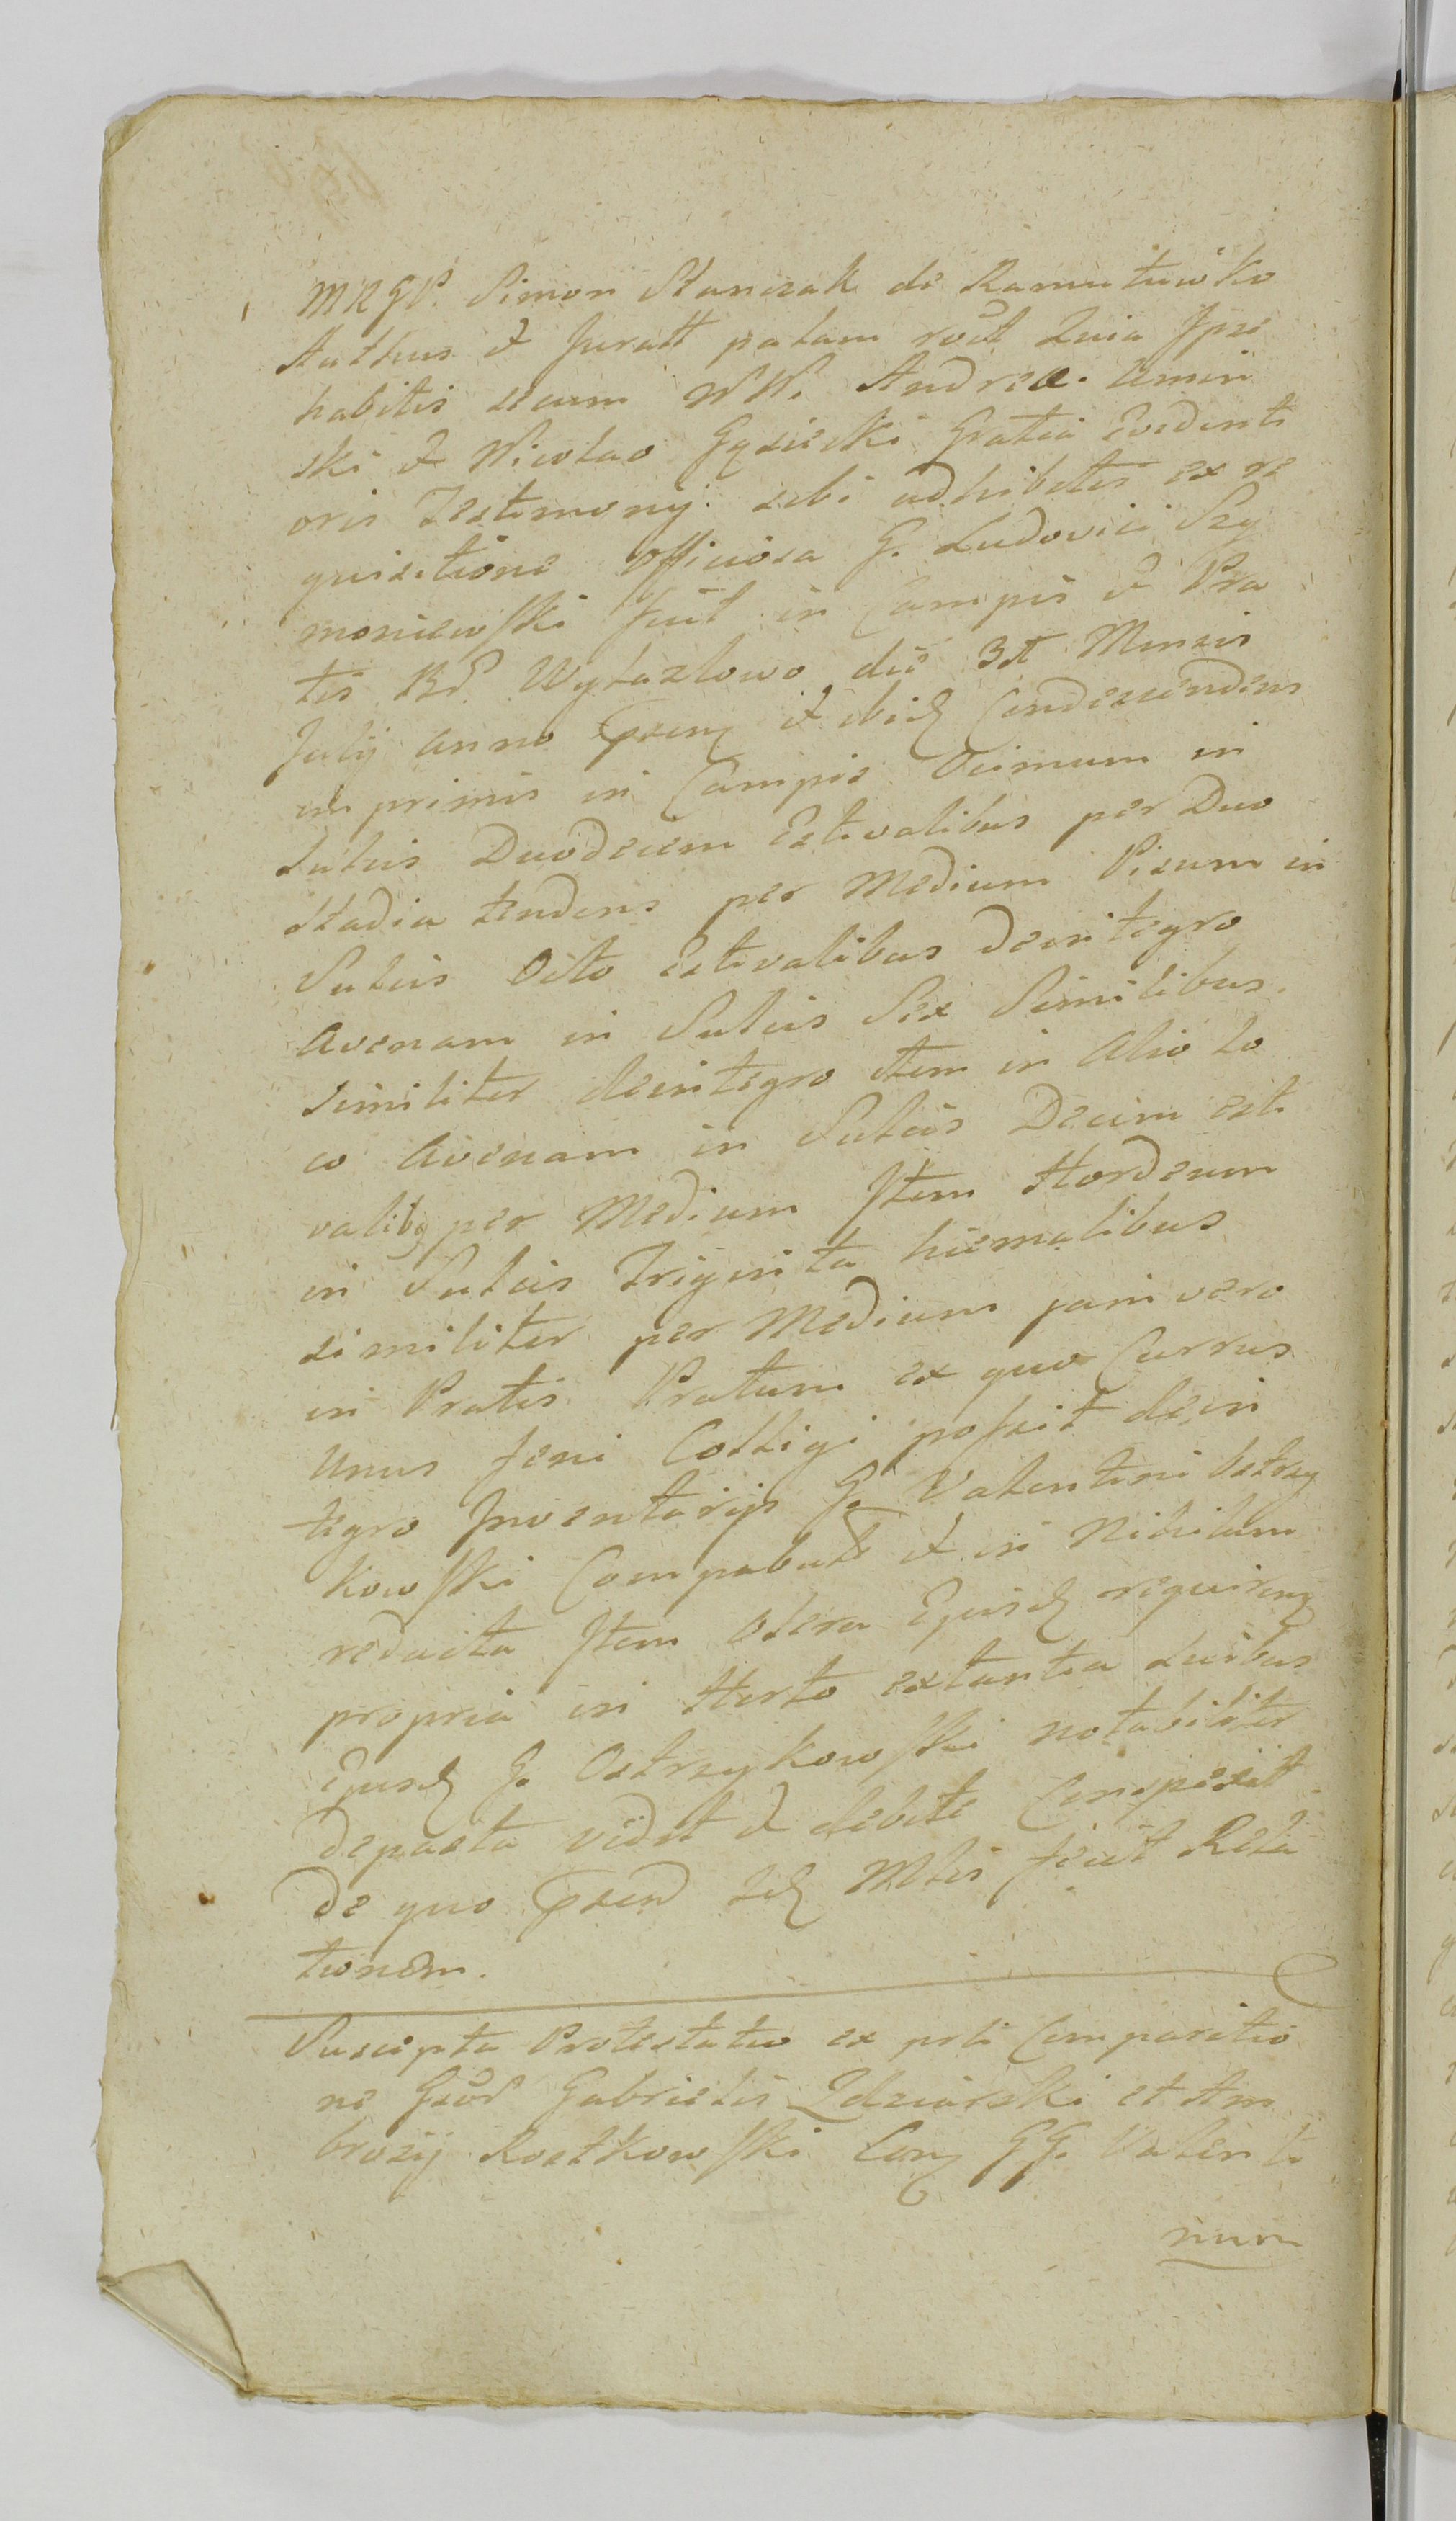 MRGP. Simon Stanczak de Ramutuwko
Authus & Juratt palam rōct Quia Ipse
habitis secum NN. Andrea. Umin
ski & Nicolao Gąsiecki Gratia Evidenti
oris Testimonij sibi adhibitis ex re
quisitione officiosa G. Ludovici Szy
moniewski fuit in Campis & Pra
tis B. Wylazlowo die 3tt Mensis
July anno &
in primis in Campis in
Sulcis Duodecim Estivalibus per Duo
stadia tendens per Medium Pisum in
Sulcis Octo Estivalibus deintegro
Avenam in Sulcis Sex Similibus
similiter deintegro Item in Alio Lo
co Avenam in Sulcis Decim esti
valibq per Medium Item Hordeum
in Sulcis Triginta hiemalibus
similiter per Medium jam vero
in Pratis Pratum ex quo Currus
unus feni Colligi possit dein
tegro Inventarijs G. Valentini Ostrzy
kowski & in Nihilum
redacta Item olera Ejusd
propria in Horto extantia Suibus
Ejusd G. Ostrzykowski notabiliter
depasta vidit & debite Conspexit
de quo fecit Rela
tionem.
Suscepta Protestatio ex prti Comparitio
ne Gabrielis Zdziarski et Am
brozij Rostkowski Con GG. Valenti
num